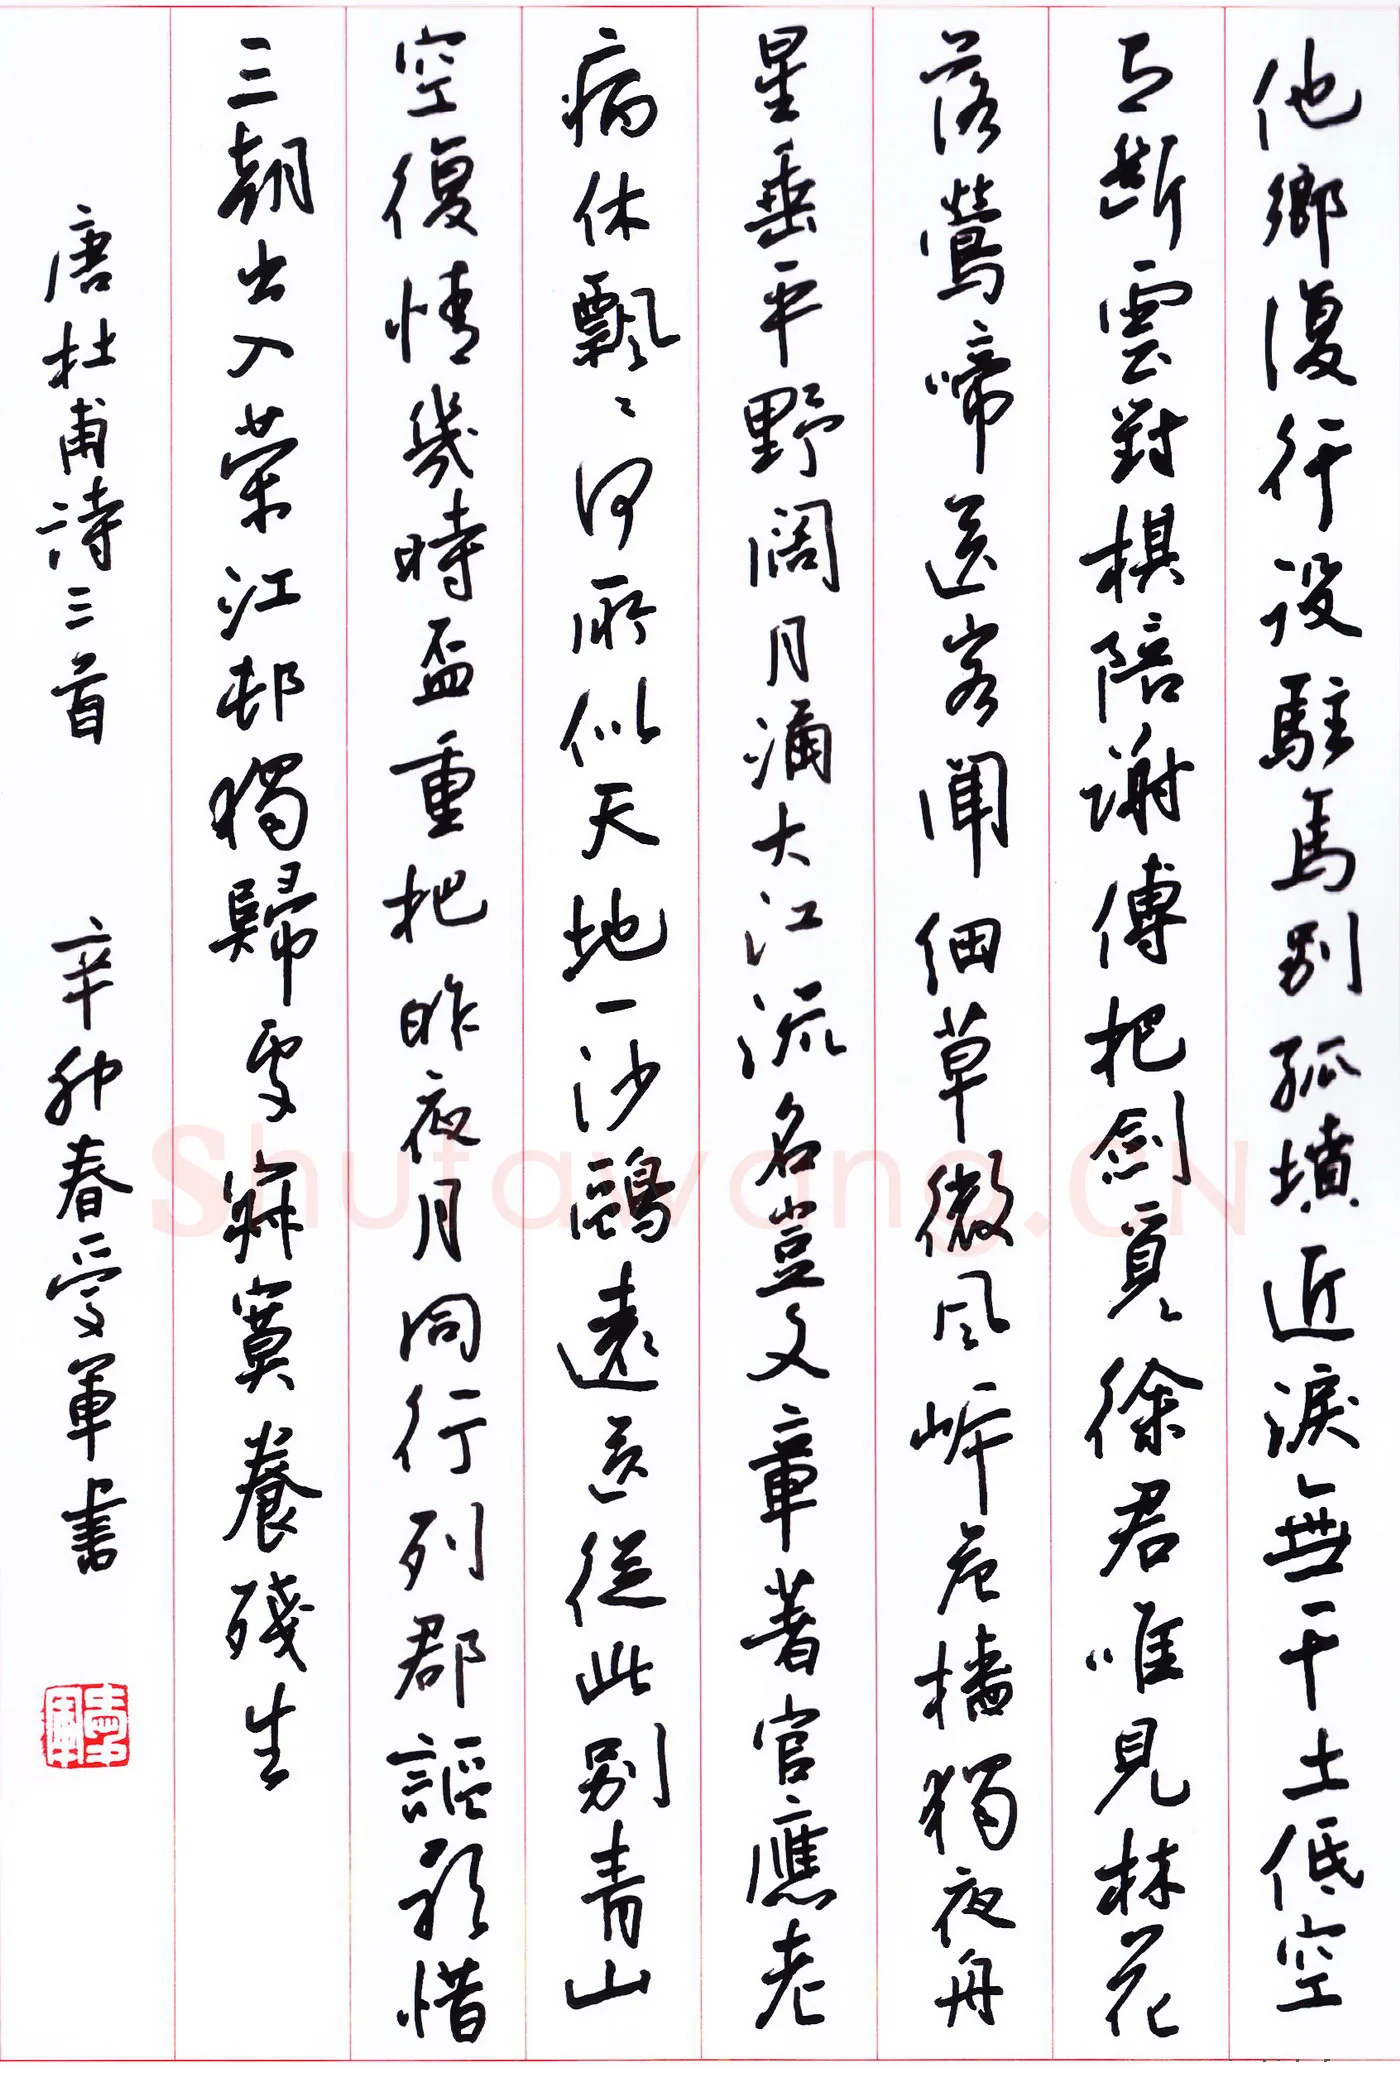 他鄉復行设駐馬別孤墳近淚無干土低空
有斷雲對棋陪謝傅把劍覓徐君唯見林花
落鶯啼送客闻細草微风岸危檣獨夜舟
星垂平野阔月涌大江流名豈文章著官應老
病休飄飄何所似天地一沙鷗遠送從此別青山
空復情幾時盃重把昨夜月同行列郡謳歌惜
三朝出入荣江邨獨歸處寂寞養殘生
唐杜甫詩三首
辛卯春受軍書
Shufawang.CN